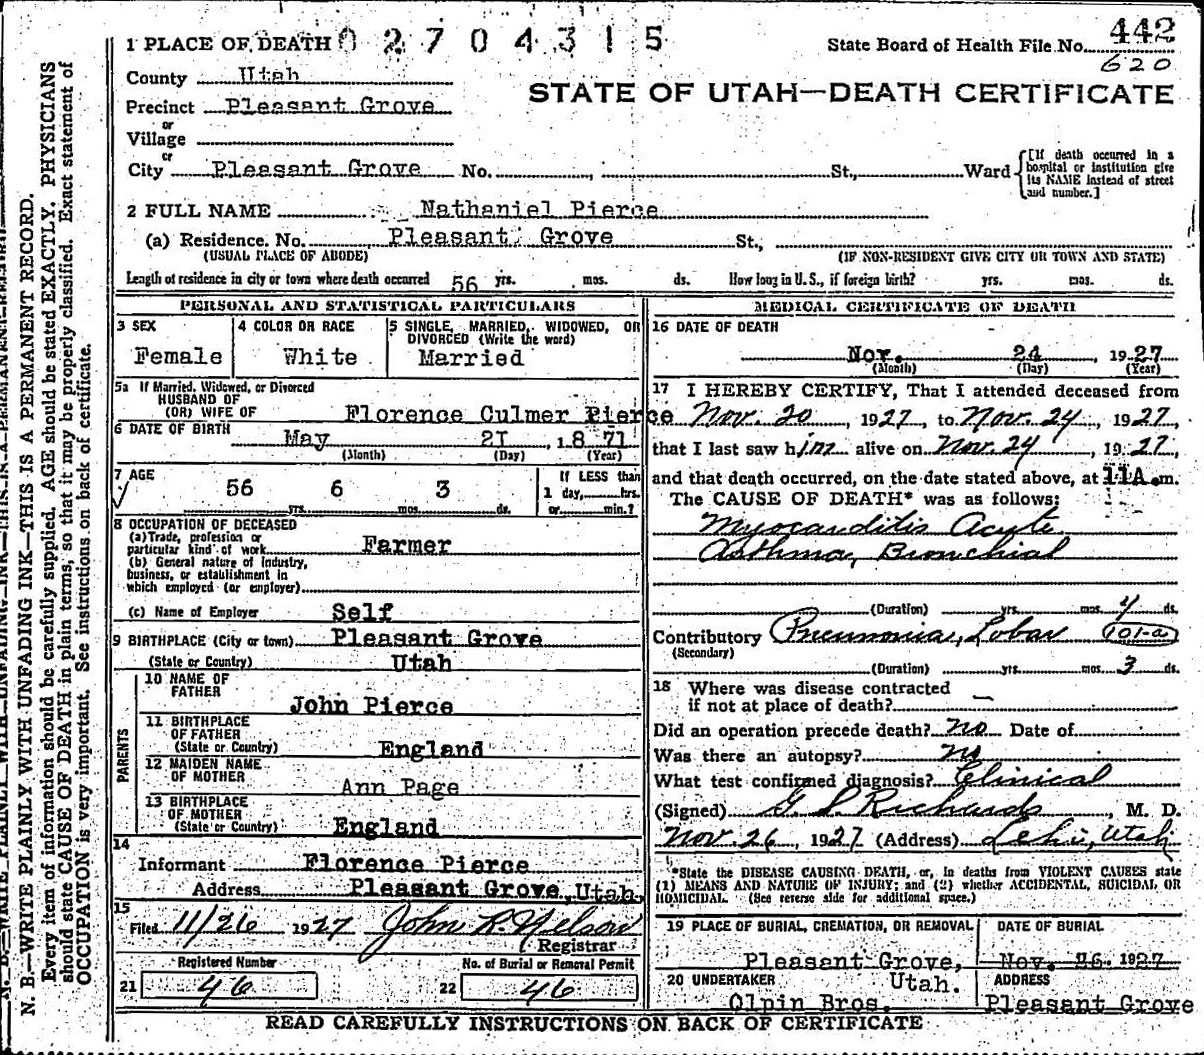 1 PLACE OF DEATH 0 2 7 0 4 3 1 5
State Board of Health File No. 442
620
County Utah
STATE OF UTAH—DEATH CERTIFICATE
Precinct Pleasant Grove
or
Village
or
City Pleasant Grove No. , St., Ward
[If death occurred in a
hospital or institution give
its NAME instead of street
and number.]
2 FULL NAME Nathaniel Pierce
(a) Residence. No. Pleasant Grove St.,
(USUAL PLACE OF ABODE) (IF NON-RESIDENT GIVE CITY OR TOWN AND STATE)
Length of residence in city or town where death occurred 56 yrs. mos. ds. How long in U. S., if foreign birth? yrs. mos. ds.
PERSONAL AND STATISTICAL PARTICULARS
3 SEX
Female
4 COLOR OR RACE
White
5 SINGLE, MARRIED, WIDOWED, OR
DIVORCED (Write the word)
Married
5a If Married, Widowed, or Divorced
HUSBAND OF
(OR) WIFE OF Florence Culmer Pierce
6 DATE OF BIRTH May 21, 1871
(Month) (Day) (Year)
7 AGE
56 yrs. 6 mos. 3 ds.
If LESS than
1 day, hrs.
or min.?
8 OCCUPATION OF DECEASED
(a) Trade, profession or
particular kind of work Farmer
(b) General nature of industry,
business, or establishment in
which employed (or employer)
(c) Name of Employer Self
9 BIRTHPLACE (City or town) Pleasant Grove
(State or Country) Utah
PARENTS
10 NAME OF
FATHER
John Pierce
11 BIRTHPLACE
OF FATHER
(State or Country) England
12 MAIDEN NAME
OF MOTHER
Ann Page
13 BIRTHPLACE
OF MOTHER
(State or Country) England
14
Informant Florence Pierce
Address Pleasant Grove, Utah.
15
Filed 11/26 1927 John R. Nelson
Registrar
Registered Number
21 46
No. of Burial or Removal Permit
22 46
MEDICAL CERTIFICATE OF DEATH
16 DATE OF DEATH
Nov. 24, 1927
(Month) (Day) (Year)
17 I HEREBY CERTIFY, That I attended deceased from
Nov. 20, 1927, to Nov. 24, 1927
that I last saw him alive on Nov. 24, 1927,
and that death occurred, on the date stated above, at 11A.m.
The CAUSE OF DEATH* was as follows:
Myocarditis Acute
Asthma, Bronchial
(Duration) yrs. mos. 4 ds.
Contributory Pneumonia, Lobar 101-a
(Secondary)
(Duration) yrs. mos. 3 ds.
18 Where was disease contracted
if not at place of death? —
Did an operation precede death? no Date of
Was there an autopsy? no
What test confirmed diagnosis? Clinical
(Signed) G. S. Richards, M. D.
Nov. 26, 1927 (Address) Lehi, Utah
*State the DISEASE CAUSING DEATH, or, in deaths from VIOLENT CAUSES state
(1) MEANS AND NATURE OF INJURY; and (2) whether ACCIDENTAL, SUICIDAL OR
HOMICIDAL. (See reverse side for additional space.)
19 PLACE OF BURIAL, CREMATION, OR REMOVAL
Pleasant Grove,
Utah.
DATE OF BURIAL
Nov. 26, 1927
20 UNDERTAKER
Olpin Bros.
ADDRESS
Pleasant Grove
READ CAREFULLY INSTRUCTIONS ON BACK OF CERTIFICATE
N. B.—WRITE PLAINLY WITH UNFADING INK—THIS IS A PERMANENT RECORD.
Every item of information should be carefully supplied. AGE should be stated EXACTLY. PHYSICIANS
should state CAUSE OF DEATH in plain terms, so that it may be properly classified. Exact statement of
OCCUPATION is very important. See instructions on back of certificate.